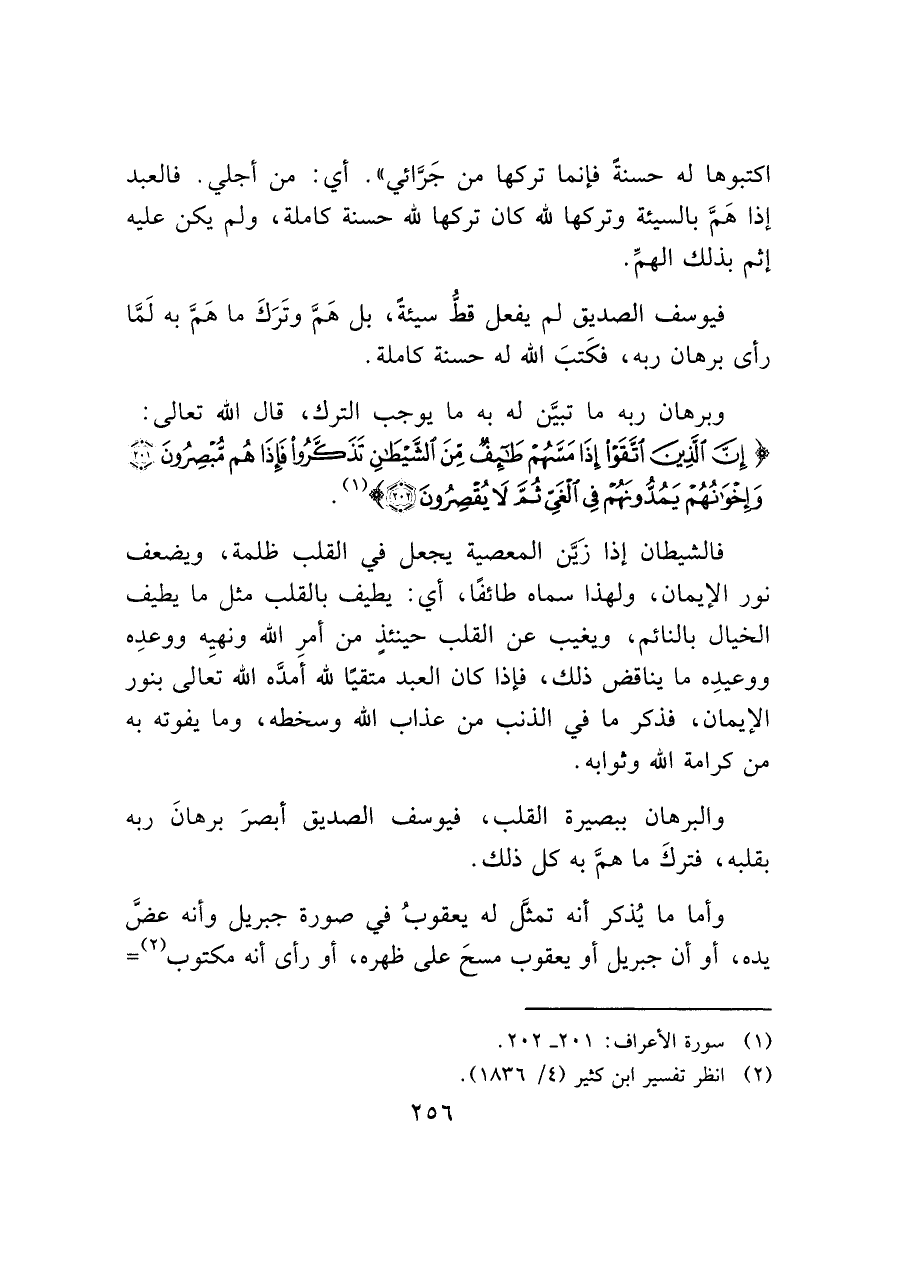 اكتبوها له حسنةً فإنما تركها من جَرَّائي». أي: من أجلي. فالعبد
إذا هَمَّ بالسيئة وتركها لله كان تركها لله حسنة كاملة، ولم يكن عليه
إثم بذلك الهمِّ.
فيوسف الصديق لم يفعل قطُّ سيئةً، بل هَمَّ وتَرَكَ ما هَمَّ به لَمَّا
رأى برهان ربه، فكَتبَ الله له حسنة كاملة.
وبرهان ربه ما تبيَّن له به ما يوجب الترك، قال الله تعالى:
﴿ إِنَّ ٱلَّذِينَ ٱتَّقَوْا۟ إِذَا مَسَّهُمْ طَٰٓئِفٌ مِّنَ ٱلشَّيْطَٰنِ تَذَكَّرُوا۟ فَإِذَا هُم مُّبْصِرُونَ ٢٠١
وَإِخْوَٰنُهُمْ يَمُدُّونَهُمْ فِى ٱلْغَىِّ ثُمَّ لَا يُقْصِرُونَ ٢٠٢﴾(١).
فالشيطان إذا زَيَّن المعصية يجعل في القلب ظلمة، ويضعف
نور الإيمان، ولهذا سماه طائفًا، أي: يطيف بالقلب مثل ما يطيف
الخيال بالنائم، ويغيب عن القلب حينئذٍ من أمرِ الله ونهيِه ووعدِه
ووعيدِه ما يناقض ذلك، فإذا كان العبد متقيًا لله أمدَّه الله تعالى بنور
الإيمان، فذكر ما في الذنب من عذاب الله وسخطه، وما يفوته به
من كرامة الله وثوابه.
والبرهان ببصيرة القلب، فيوسف الصديق أبصرَ برهانَ ربه
بقلبه، فتركَ ما همَّ به كل ذلك.
وأما ما يُذكر أنه تمثَّل له يعقوبُ في صورة جبريل وأنه عضَّ
يده، أو أن جبريل أو يعقوب مسحَ على ظهره، أو رأى أنه مكتوب(٢)=
(١) سورة الأعراف: ٢٠١ـ ٢٠٢.
(٢) انظر تفسير ابن كثير (٤/ ١٨٣٦).
٢٥٦